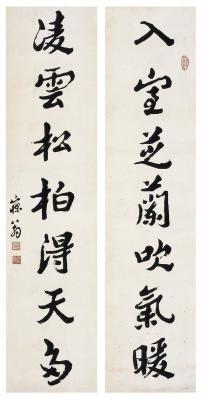 入室芝蘭吹氣暖
凌雲松柏得天多
寐翁